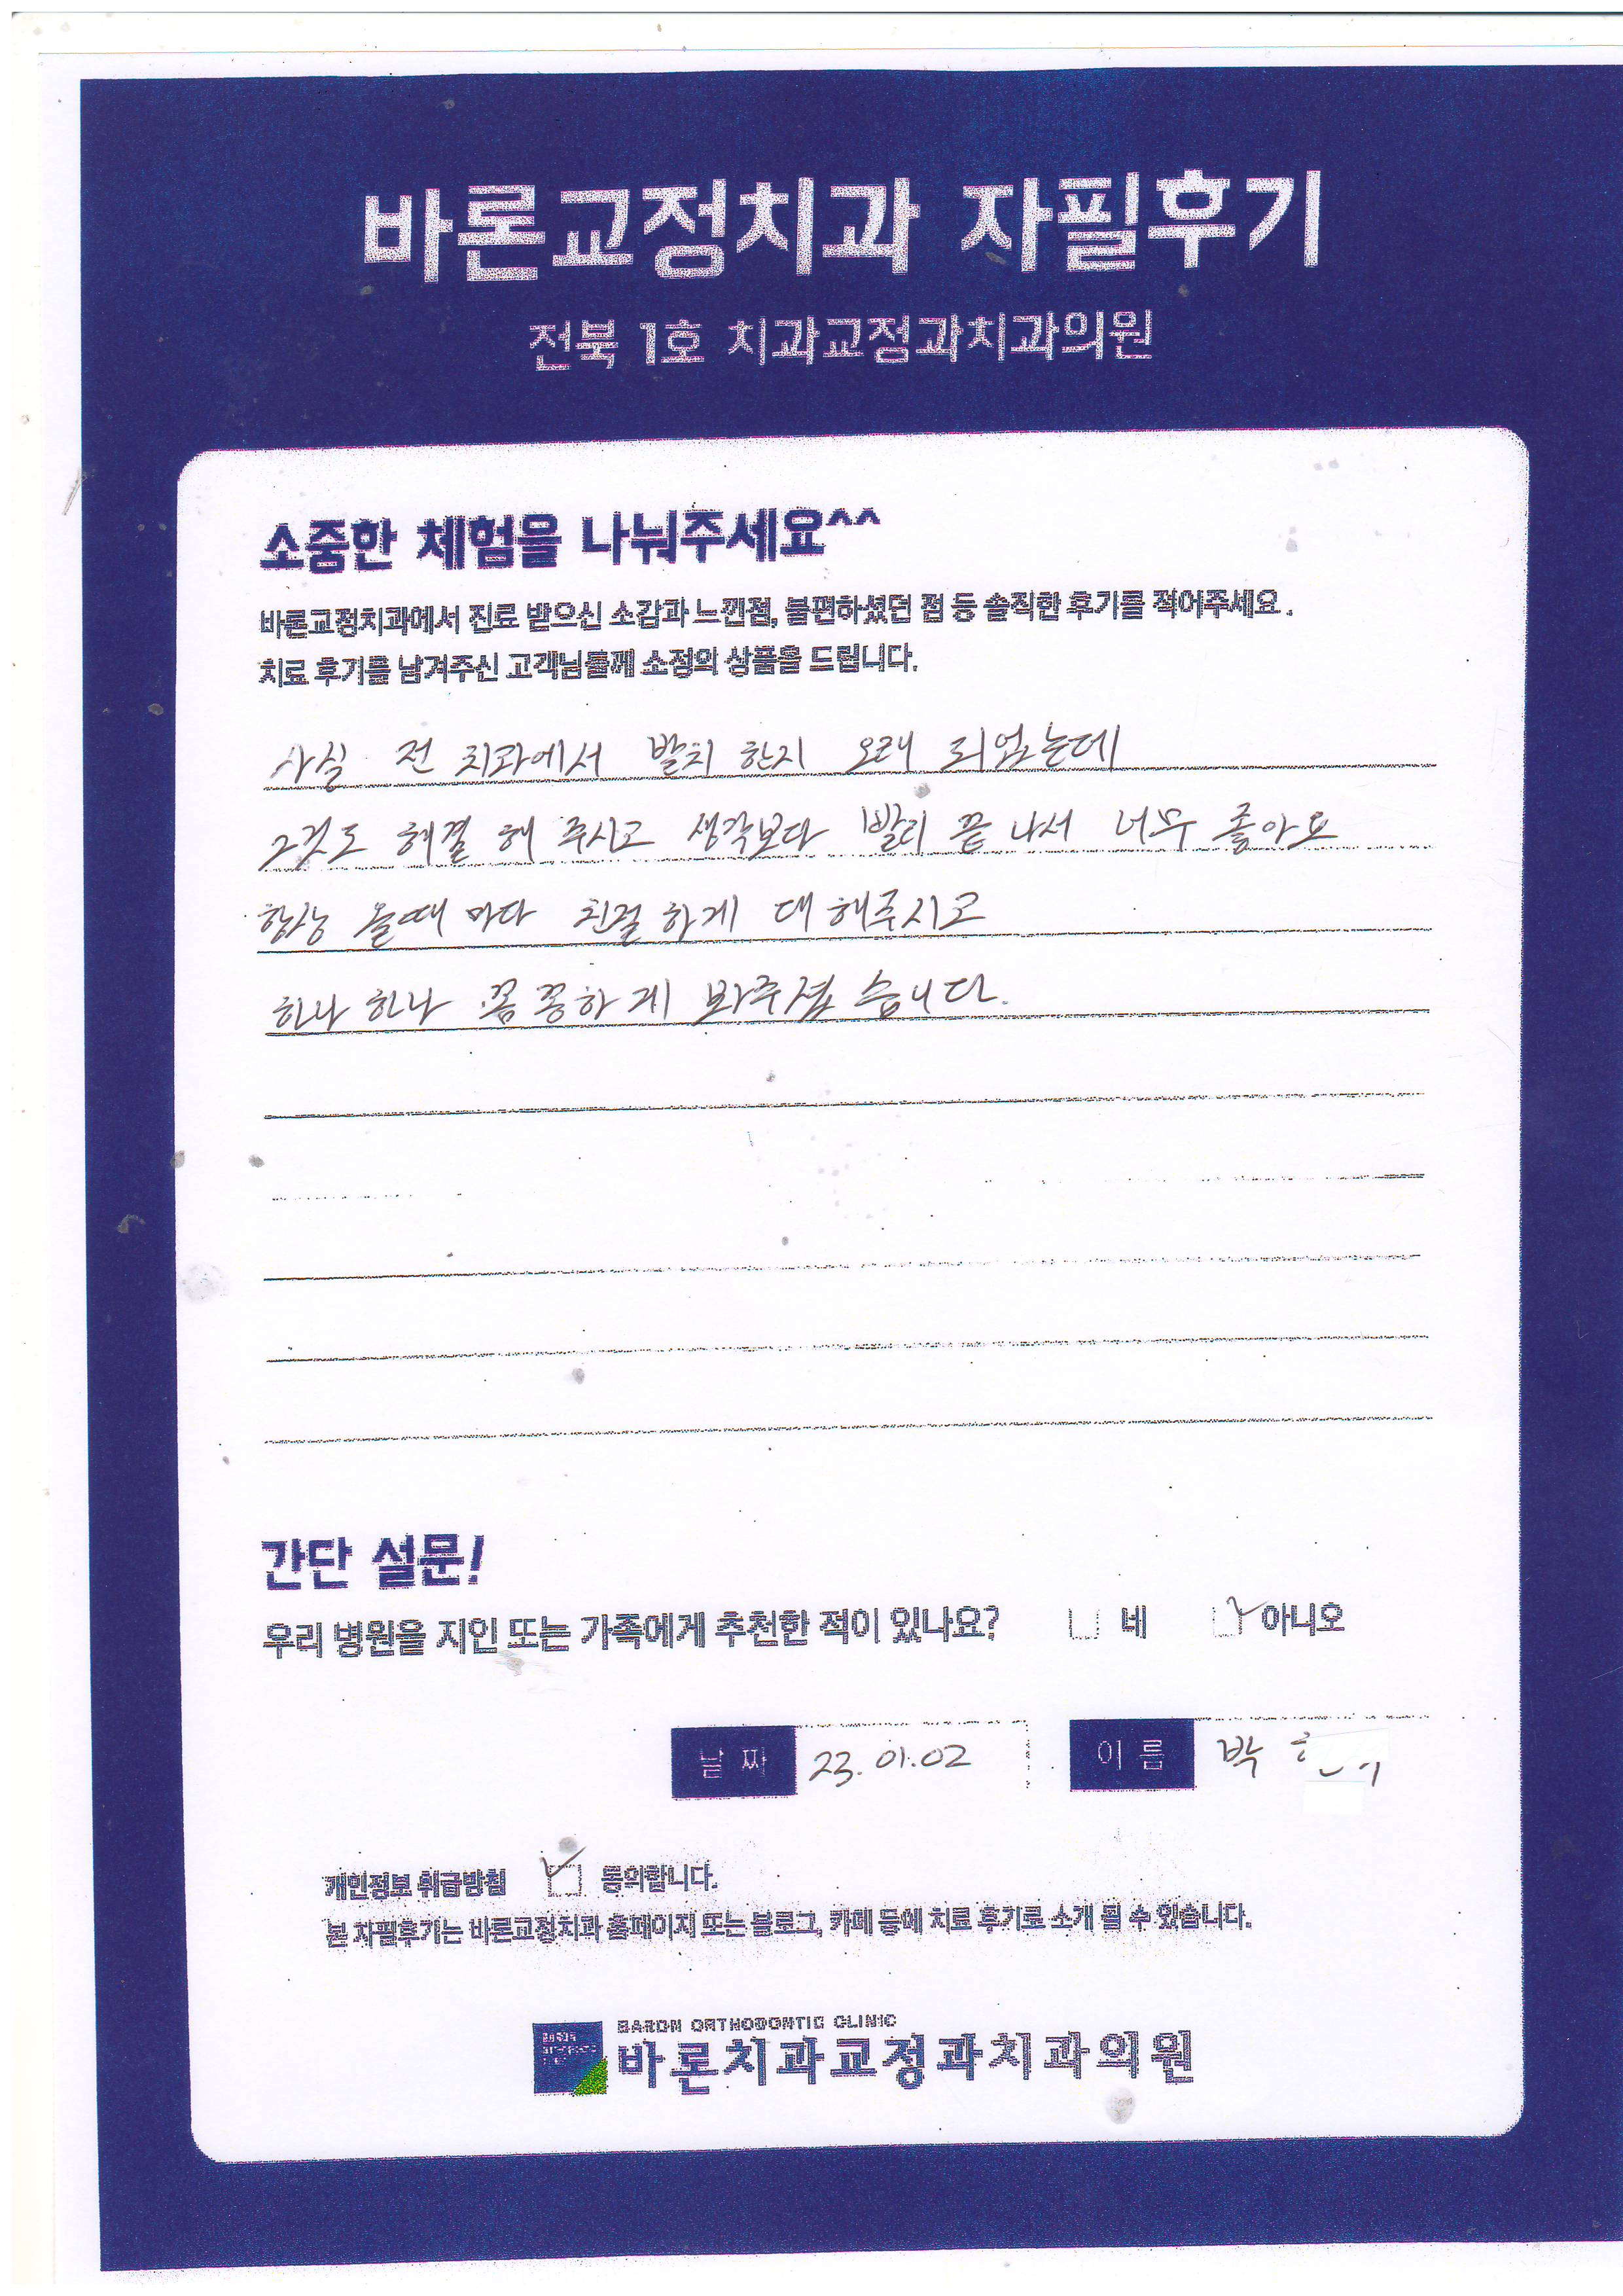 바론교정치과 자필후기
전북 1호 치과교정과치과의원
소중한 체험을 나눠주세요^^
바론교정치과에서 진료 받으신 소감과 느낀점, 불편하셨던 점 등 솔직한 후기를 적어주세요.
치료 후기를 남겨주신 고객님들께 소정의 상품을 드립니다.
사실 전 치과에서 발치 한지 오래 되었는데
그것도 해결 해 주시고 생각보다 빨리 끝 나서 너무 좋아요
항상 올때 마다 친절 하게 대 해주시고
하나 하나 꼼꼼하 게 봐주셨 습니다.
간단 설문!
우리 병원을 지인 또는 가족에게 추천한 적이 있나요? 네 아니오
날 짜 23.01.02 이 름 박
개인정보 취급방침 동의합니다.
본 자필후기는 바론교정치과 홈페이지 또는 블로그, 카페 등에 치료 후기로 소개 될 수 있습니다.
BARON ORTHODONTIC CLINIC
바론치과교정과치과의원